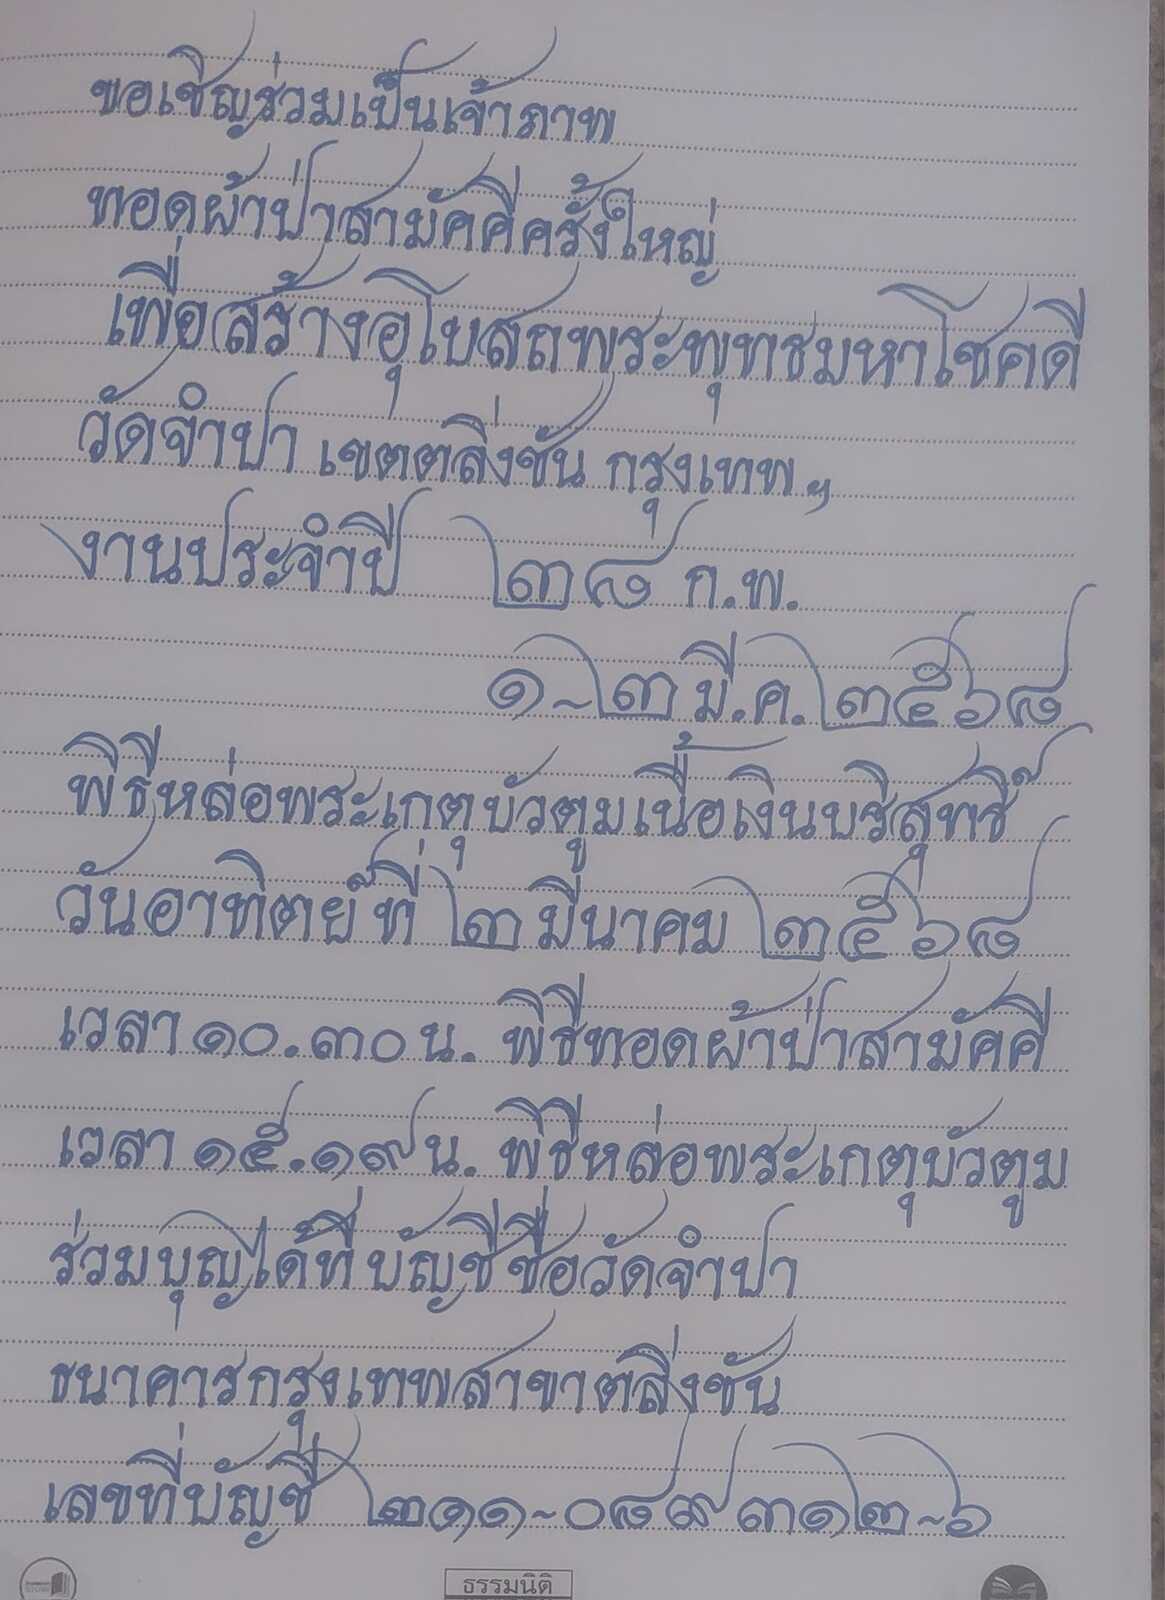 ขอเชิญร่วมเป็นเจ้าภาพ
ทอดผ้าป่าสามัคคีครั้งใหญ่
เพื่อสร้างอุโบสถพระพุทธมหาโชคดี
วัดจำปา เขตตลิ่งชัน กรุงเทพฯ
งานประจำปี ๒๘ ก.พ.
๑-๒ มี.ค. ๒๕๖๘
พิธีหล่อพระเกตุบัวตูมเนื้อเงินบริสุทธิ์
วันอาทิตย์ที่ ๒ มีนาคม ๒๕๖๘
เวลา ๑๐.๓๐ น. พิธีทอดผ้าป่าสามัคคี
เวลา ๑๕.๑๙ น. พิธีหล่อพระเกตุบัวตูม
ร่วมบุญได้ที่บัญชีชื่อวัดจำปา
ธนาคารกรุงเทพสาขาตลิ่งชัน
เลขที่บัญชี ๒๑๑-๐๘๙๓๑๒-๖
ธรรมนิติ